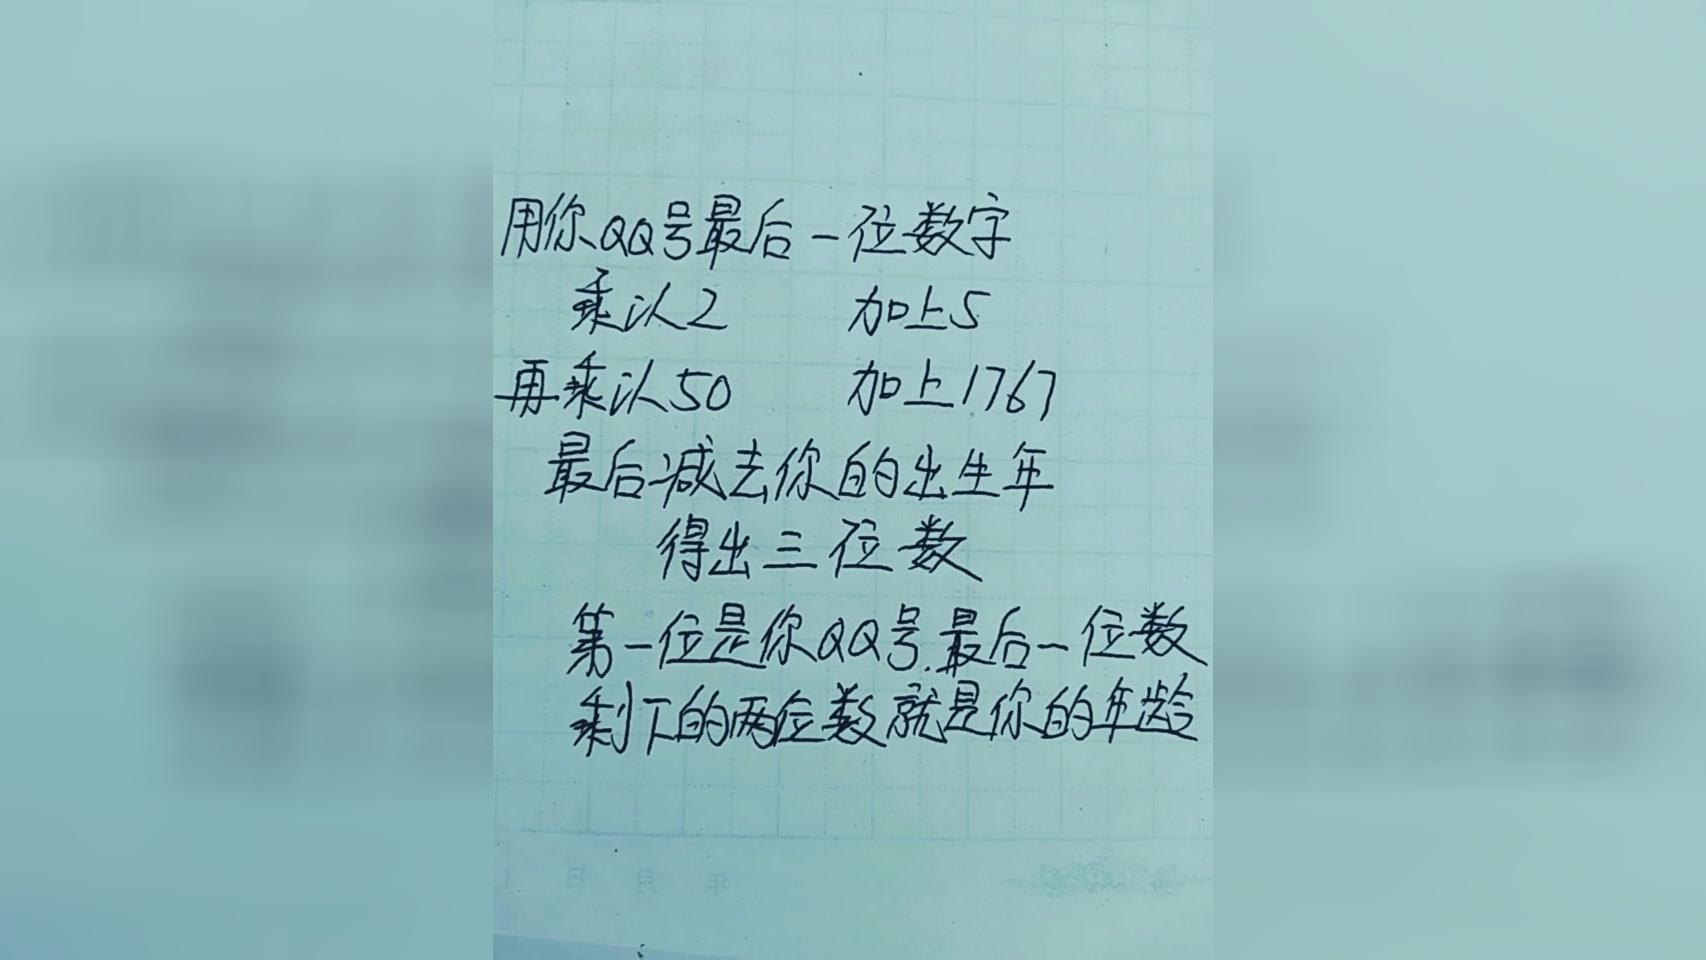 用你QQ号最后一位数字
乘以2 加上5
再乘以50 加上1767
最后减去你的出生年
得出三位数
第一位是你QQ号.最后一位数
剩下的两位数就是你的年龄
年 月 日